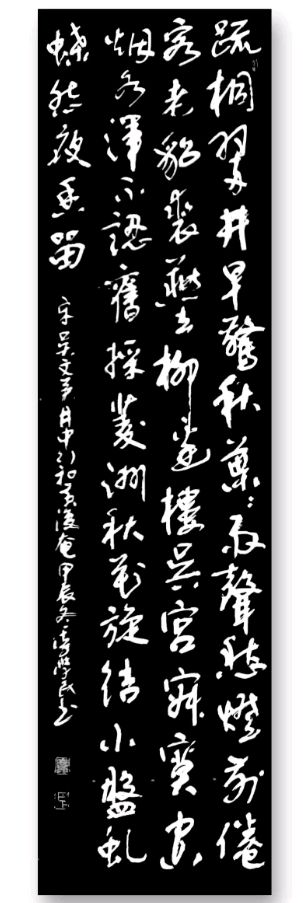 疏桐翠井早驚秋葉〻雨聲愁燈前倦
客老貂裘燕去柳邊樓吳宮寂寞空
烟水渾不認舊採菱洲秋花旋結小盤虬
蝶怨夜香留
宋吳文英月中行和黃復庵甲辰冬學民書